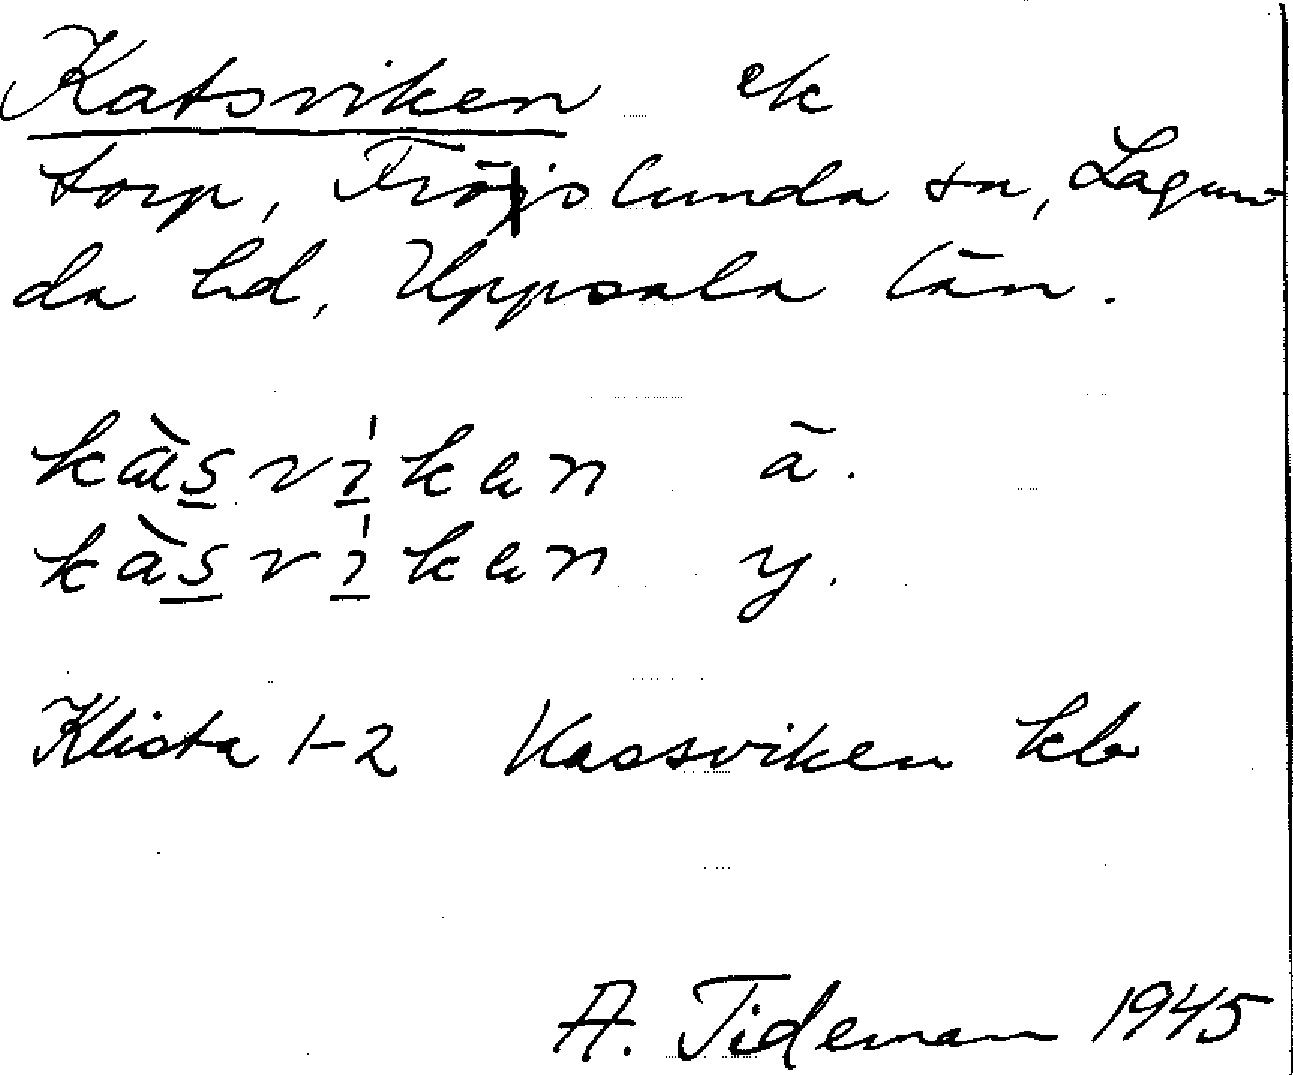 Katsviken ek
torp, Fröslunda sn, Lagun-
da hd, Uppsala län.
kàsvìkan ä.
kàsvìkan y.
Klista 1-2 Kassviken kb
A. Tideman 1945